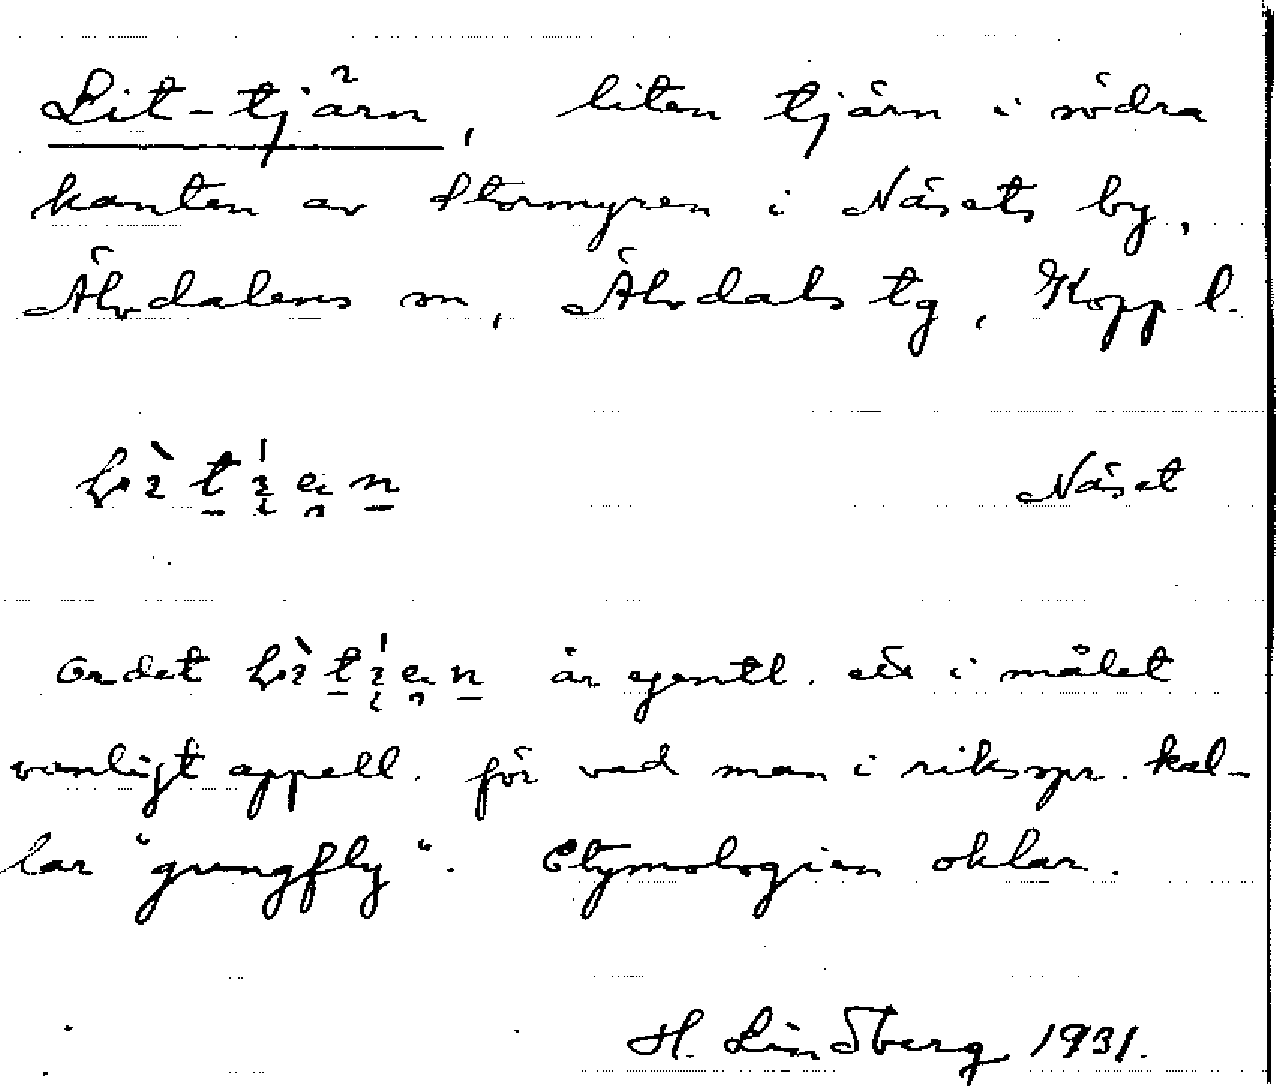 Lit-tjärn, liten tjärn i södra
kanten av Stormyren i Näsets by,
Älvdalens sn, Älvdals tg, Kopp l.
Näset
Ordet är egentl. ett i målet
vanligt appell. för vad man i rikspr. kal-
lar "gungfly". Etymologien oklar.
H. Lindberg 1931.